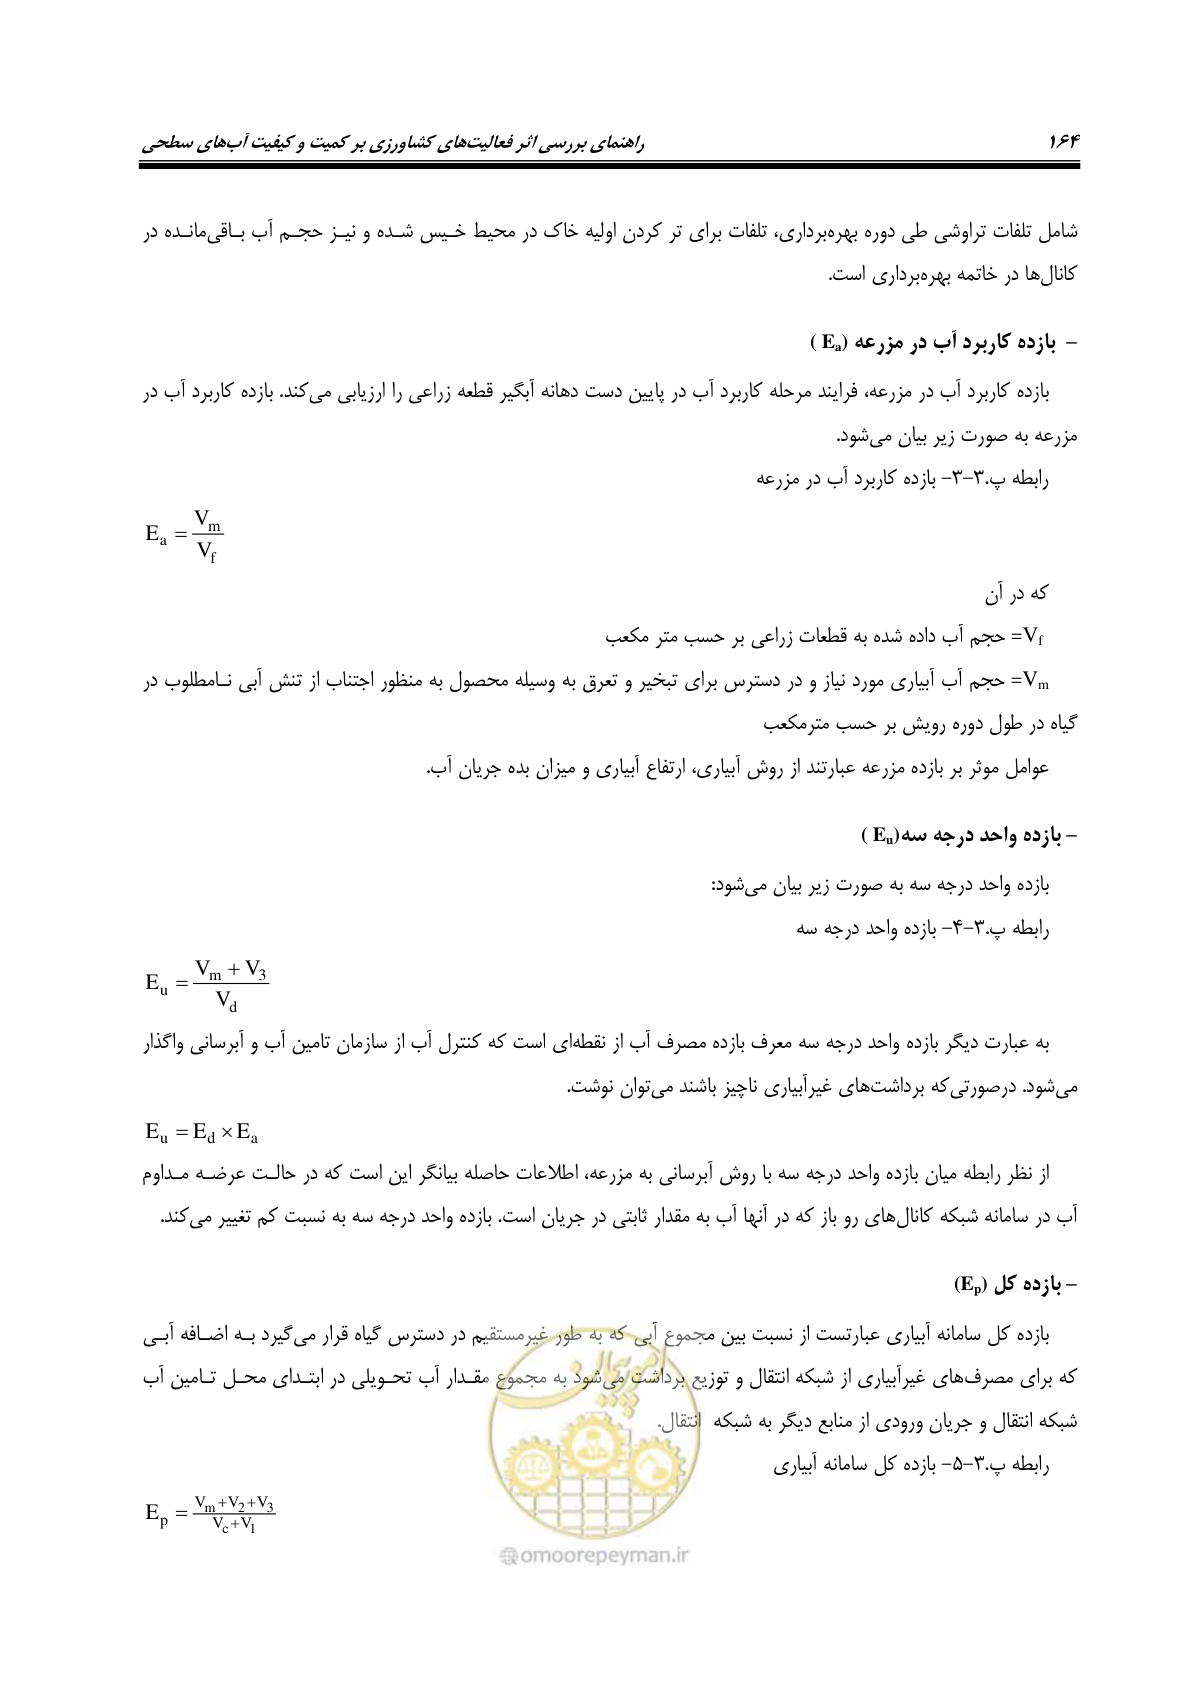 ۱۶۴ راهنمای بررسی اثر فعالیت‌های کشاورزی بر کمیت و کیفیت آب‌های سطحی
شامل تلفات تراوشی طی دوره بهره‌برداری، تلفات برای تر کردن اولیه خاک در محیط خیس شده و نیز حجم آب باقی‌مانده در
کانال‌ها در خاتمه بهره‌برداری است.
- بازده کاربرد آب در مزرعه (Ea )
بازده کاربرد آب در مزرعه، فرایند مرحله کاربرد آب در پایین دست دهانه آبگیر قطعه زراعی را ارزیابی می‌کند. بازده کاربرد آب در
مزرعه به صورت زیر بیان می‌شود.
رابطه پ.۳-۳- بازده کاربرد آب در مزرعه
Ea = Vm / Vf
که در آن
Vf= حجم آب داده شده به قطعات زراعی بر حسب متر مکعب
Vm= حجم آب آبیاری مورد نیاز و در دسترس برای تبخیر و تعرق به وسیله محصول به منظور اجتناب از تنش آبی نامطلوب در
گیاه در طول دوره رویش بر حسب مترمکعب
عوامل موثر بر بازده مزرعه عبارتند از روش آبیاری، ارتفاع آبیاری و میزان بده جریان آب.
- بازده واحد درجه سه(Eu )
بازده واحد درجه سه به صورت زیر بیان می‌شود:
رابطه پ.۳-۴- بازده واحد درجه سه
Eu = (Vm + V3) / Vd
به عبارت دیگر بازده واحد درجه سه معرف بازده مصرف آب از نقطه‌ای است که کنترل آب از سازمان تامین آب و آبرسانی واگذار
می‌شود. درصورتی‌که برداشت‌های غیرآبیاری ناچیز باشند می‌توان نوشت.
Eu = Ed × Ea
از نظر رابطه میان بازده واحد درجه سه با روش آبرسانی به مزرعه، اطلاعات حاصله بیانگر این است که در حالت عرضه مداوم
آب در سامانه شبکه کانال‌های رو باز که در آنها آب به مقدار ثابتی در جریان است. بازده واحد درجه سه به نسبت کم تغییر می‌کند.
- بازده کل (Ep)
بازده کل سامانه آبیاری عبارتست از نسبت بین مجموع آبی که به طور غیرمستقیم در دسترس گیاه قرار می‌گیرد به اضافه آبی
که برای مصرف‌های غیرآبیاری از شبکه انتقال و توزیع برداشت می‌شود به مجموع مقدار آب تحویلی در ابتدای محل تامین آب
شبکه انتقال و جریان ورودی از منابع دیگر به شبکه انتقال.
رابطه پ.۳-۵- بازده کل سامانه آبیاری
Ep = (Vm+V2+V3) / (Vc+V1)
امور پیمان
@omoorepeyman.ir